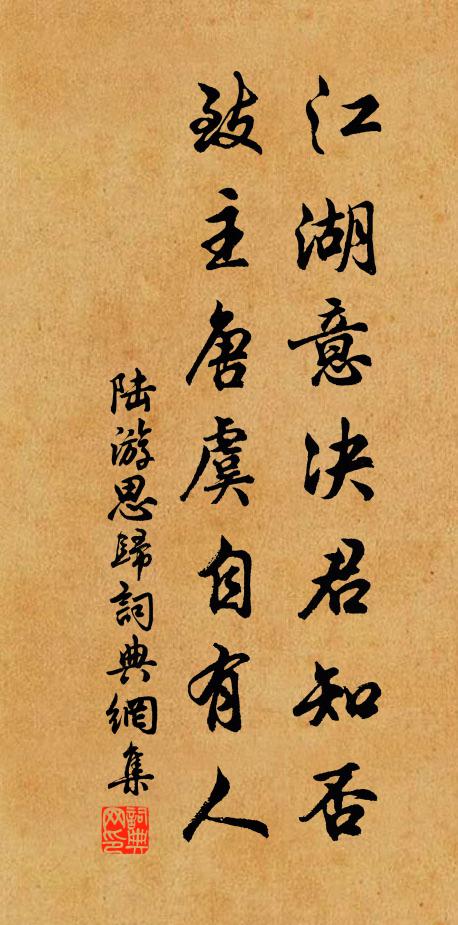 江湖意决君知否
致主唐虞自有人
陆游思歸詞典網集
詞典网印